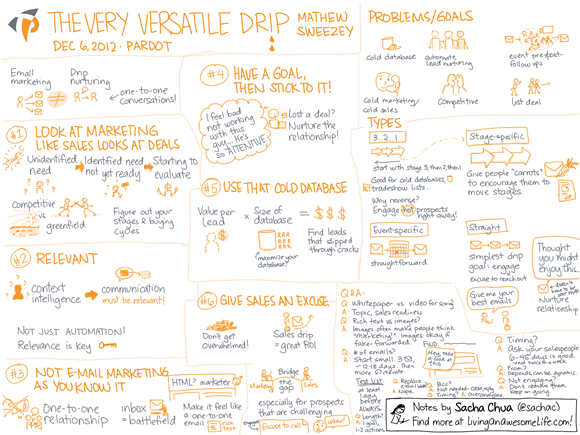 THE VERY VERSATILE DRIP
MATHEW
SWEEZEY
DEC 6, 2012 · PARDOT
Email
marketing
Drip
nurturing
one-to-one
conversations!
#1
LOOK AT MARKETING
LIKE SALES LOOKS AT DEALS
Unidentified
need
Identified need
not yet ready
Starting to
evaluate
Competitive
vs
greenfield
Figure out your
stages & buying
cycles
#2 RELEVANT
Context
intelligence
communication
must be relevant!
NOT JUST AUTOMATION!
Relevance is key.
#3 NOT E-MAIL MARKETING
AS YOU KNOW IT
One-to-one
relationship
inbox =
battlefield
HTML? marketer
Make it feel like
a one-to-one
email
rich
text
#4 HAVE A GOAL,
THEN STICK TO IT!
I feel bad
not working
with this
guy... He's
so ATTENTIVE
Lost a deal?
Nurture the
relationship!
#5 USE THAT COLD DATABASE
Value per
Lead
x
Size of
database
= $ $ $
(maximize your
database!)
Find leads
that slipped
through cracks
#6 GIVE SALES AN EXCUSE
Don't get
overwhelmed!
Sales drip
= great ROI
Marketing
Bridge
the
gap
Sales
especially for prospects
that are challenging
Excuse to call
PROBLEMS/GOALS
cold database
automate
lead nurturing
event pre+post-
follow ups
Cold marketing/
cold sales
Competitive
lost deal
TYPES
3 2 1
start with stage 3, then 2, then 1
Good for cold databases,
tradeshow lists...
Why reverse?
Engage hot prospects
right away!
Stage-specific
Give people "carrots"
to encourage them to
move stages
Event-specific
straightforward
Straight
simplest drip
goal: engage
excuse to reach out
Thought
you might
enjoy this.
Give me your
best emails
Nurture
relationship
Q&A:
Q: Whitepaper vs video for song
A: Topic, sales readiness
Q: Rich text vs images?
A: Images often make people think
"marketing". Images okay if
fake-forwarded.
Q: # of emails?
Hey, take
a look at
this
Test List
at least
1 day
before
ALWAYS
Q: Length?
A: 1 goal,
1-2 actions
Q: Timing?
A: Ask your salespeople
6-45 days is good.
Q: From?
A: Depends, can be dynamic.
Q: Not engaging?
Notes by Sacha Chua (@sachac)
Find more at LivingAnAwesomeLife.com!